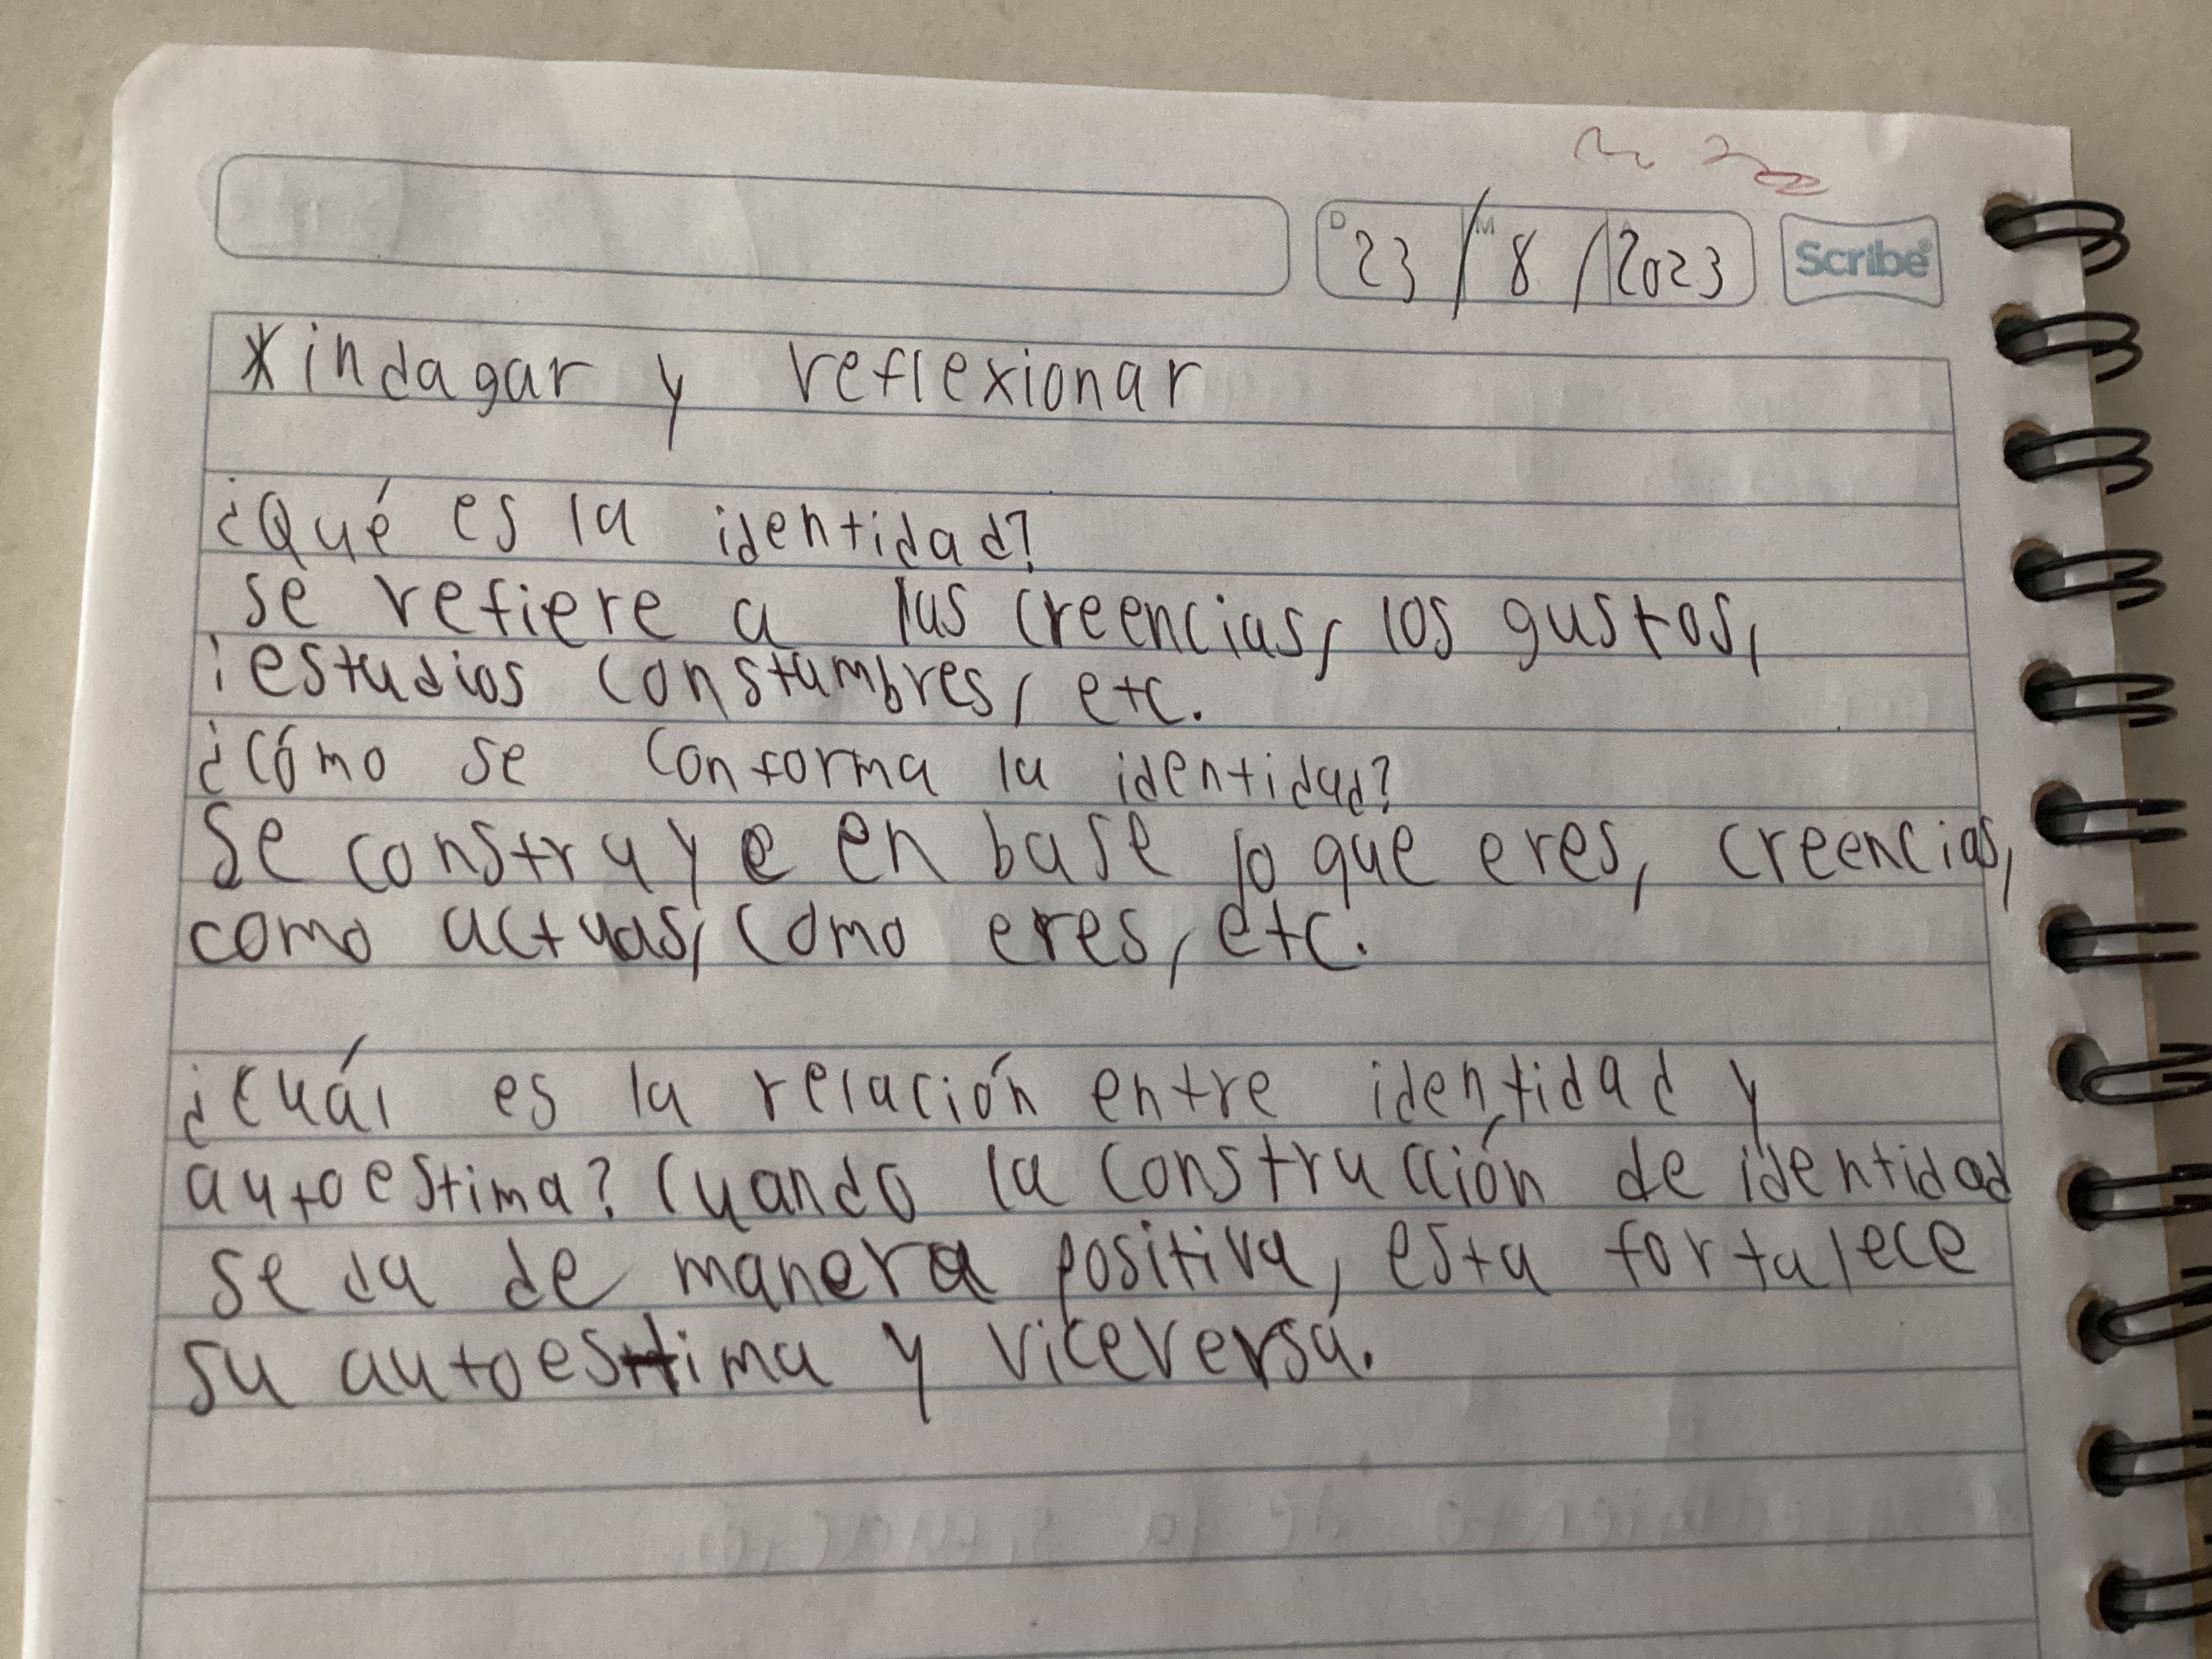 D 23 / M 8 / 2023 Scribe®
*indagar y reflexionar
¿Qué es la identidad?
se refiere a las creencias, los gustos,
estudios constumbres, etc.
¿Cómo se conforma la identidad?
Se construye en base lo que eres, creencias,
como actuas, como eres, etc.
¿Cuál es la relación entre identidad y
autoestima? Cuando la construcción de identidad
se da de manera positiva, esta fortalece
su autoestima y viceversa.